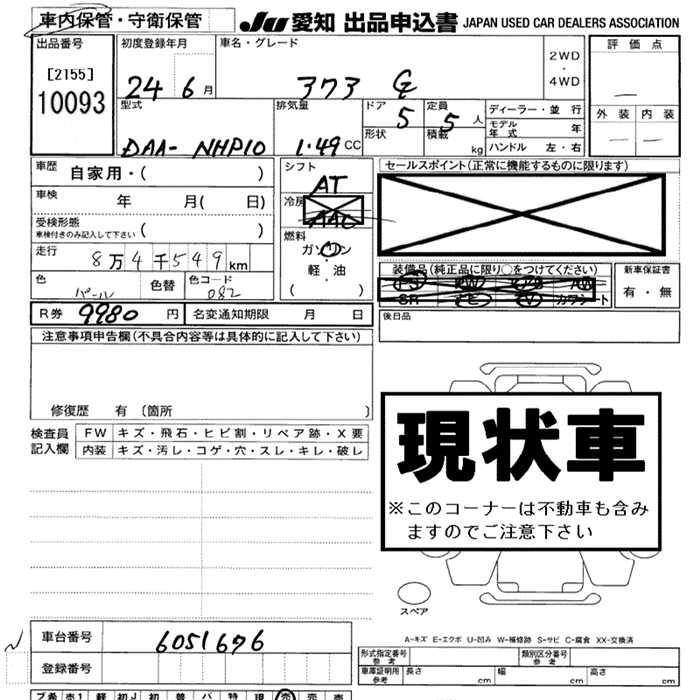 車内保管・守衛保管 JU 愛知 出品申込書 JAPAN USED CAR DEALERS ASSOCIATION
出品番号 初度登録年月 車名・グレード 2WD・4WD 評価点
[2155]
10093
24 6月
外装 内装
型式 排気量 ドア 5 定員 5人 ディーラー・並行
形状 積載 kg モデル年式 年
DAA- NHP10 1.49CC ハンドル 左・右
車歴 自家用・( ) シフト AT セールスポイント(正常に機能するものに限ります)
車検 年 月( 日) 冷房 AAC
受検形態 ( )
車検付きのみ記入して下さい
燃料 ガソリン
走行 8万4千549km 軽・油
( )
装備品(純正品に限り○をつけてください) 新車保証書
色 パール 色替 色コード 082
PS PW AW
SR ナビ TV カワシート
有・無
R券 9980円 名変通知期限 月 日 後日品
注意事項申告欄(不具合内容等は具体的に記入して下さい)
修復歴 有 [箇所 ]
検査員記入欄 FW キズ・飛石・ヒビ割・リペア跡・X要
内装 キズ・汚レ・コゲ・穴・スレ・キレ・破レ
現状車
※このコーナーは不動車も含み
ますのでご注意下さい
スペア
A-キズ E-エクボ U-凹み W-補修跡 S-サビ C-腐食 XX-交換済
車台番号 6051676
登録番号
形式指定番号 参考 類別区分番号 参考
車庫証明用 参考 長さ cm 幅 cm 高さ cm